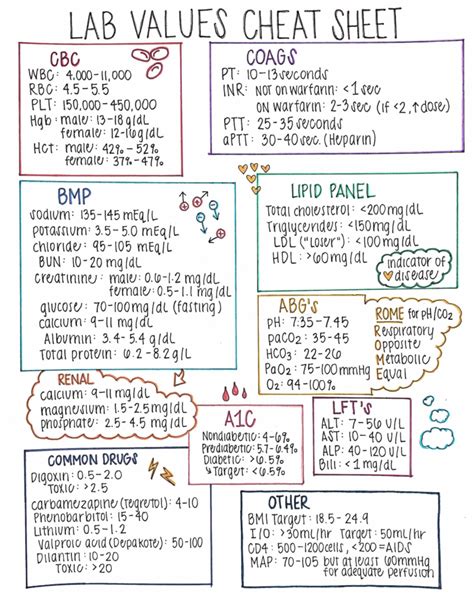 LAB VALUES CHEAT SHEET
CBC
WBC: 4,000-11,000
RBC: 4.5-5.5
PLT: 150,000-450,000
Hgb: male: 13-18 g/dL
female: 12-16 g/dL
Hct: male: 42% - 52%
female: 37% - 47%
COAGS
PT: 10-13 seconds
INR: NOT on warfarin: <1 sec
ON warfarin: 2-3 sec (if <2, ↑dose)
PTT: 25-35 seconds
aPTT: 30-40 sec. (Heparin)
BMP
sodium: 135-145 mEq/L
potassium: 3.5-5.0 mEq/L
chloride: 95-105 mEq/L
BUN: 10-20 mg/dL
creatinine: male: 0.6-1.2 mg/dL
female: 0.5-1.1 mg/dL
glucose: 70-100 mg/dL (fasting)
calcium: 9-11 mg/dL
Albumin: 3.4-5.4 g/dL
Total protein: 6.2-8.2 g/L
LIPID PANEL
Total cholesterol: <200 mg/dL
Triglycerides: <150 mg/dL
LDL ("Loser"): <100 mg/dL
HDL: >60 mg/dL
indicator of
disease
ABG's
PH: 7.35-7.45
PaCO2: 35-45
HCO3: 22-26
PaO2: 75-100 mmHg
O2: 94-100%
ROME for pH/CO2
Respiratory
Opposite
Metabolic
Equal
RENAL
calcium: 9-11 mg/dL
magnesium: 1.5-2.5 mg/dL
phosphate: 2.5-4.5 mg/dL
A1C
Nondiabetic: 4-6%
Prediabetic: 5.7-6.4%
Diabetic: >6.5%
↳Target: <6.5%
LFT's
ALT: 7-56 U/L
AST: 10-40 U/L
ALP: 40-120 U/L
Bili: <1 mg/dL
COMMON DRUGS
Digoxin: 0.5-2.0
TOXIC: >2.5
carbamazepine (Tegretol): 4-10
Phenobarbitol: 15-40
Lithium: 0.5-1.2
Valproic acid (Depakote): 50-100
Dilantin: 10-20
TOXIC: >20
OTHER
BMI Target: 18.5 - 24.9
I/O: >30ml/hr Target: 50ml/hr
CD4: 500-1200cells, <200 = AIDS
MAP: 70-105 but at least 60mmHg
for adequate perfusion